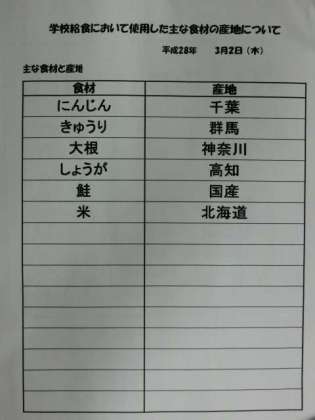 学校給食において使用した主な食材の産地について
平成28年 3月2日（水）
主な食材と産地
食材 産地
にんじん 千葉
きゅうり 群馬
大根 神奈川
しょうが 高知
鮭 国産
米 北海道